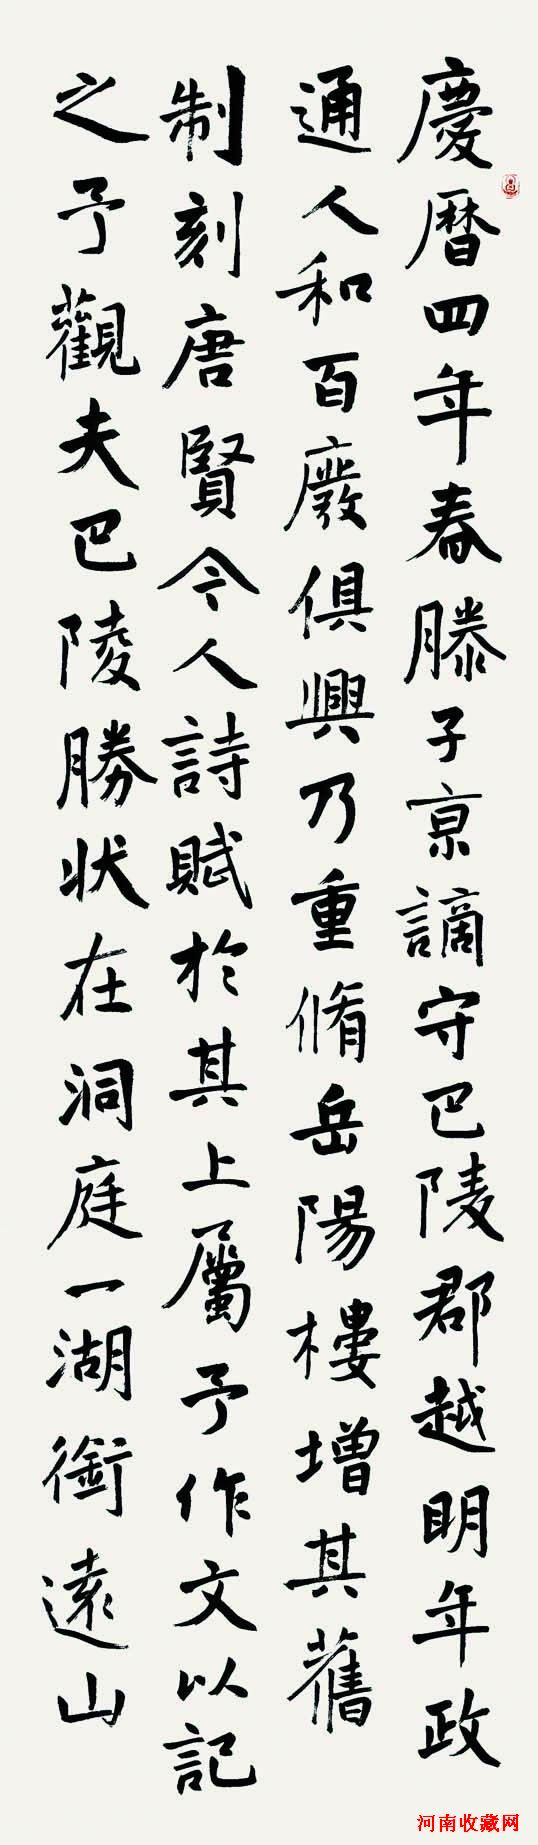 慶曆四年春滕子京謫守巴陵郡越明年政
通人和百廢俱興乃重脩岳陽樓增其舊
制刻唐賢今人詩賦於其上屬予作文以記
之予觀夫巴陵勝狀在洞庭一湖銜遠山
河南收藏网